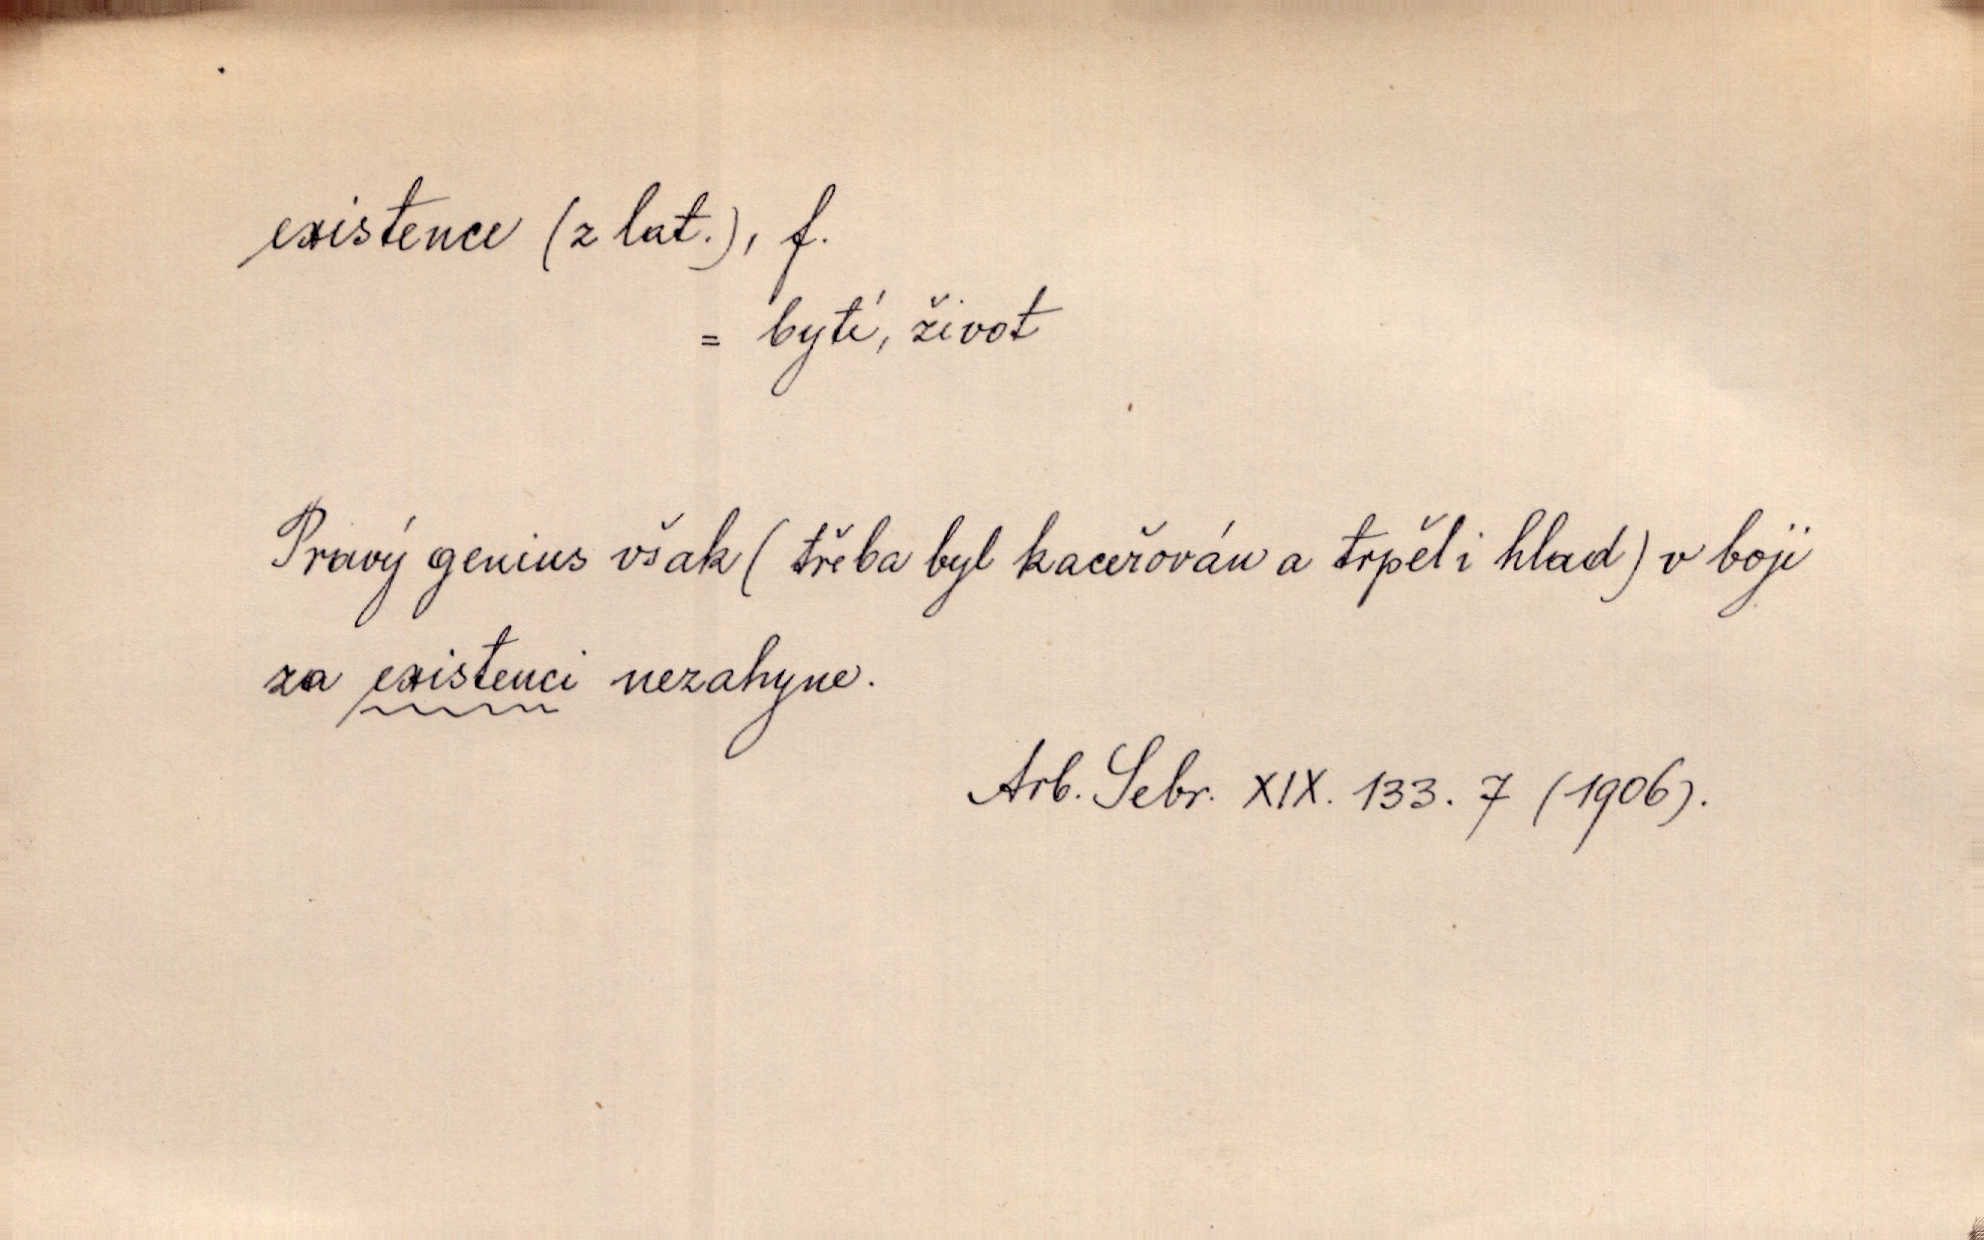 existence (z lat.), f.
= bytí, život
Pravý genius však ( třeba byl kaceřován a trpěl i hlad) v boji
za existenci nezahyne.
Arb. Sebr. XIX. 133. 7 (1906).